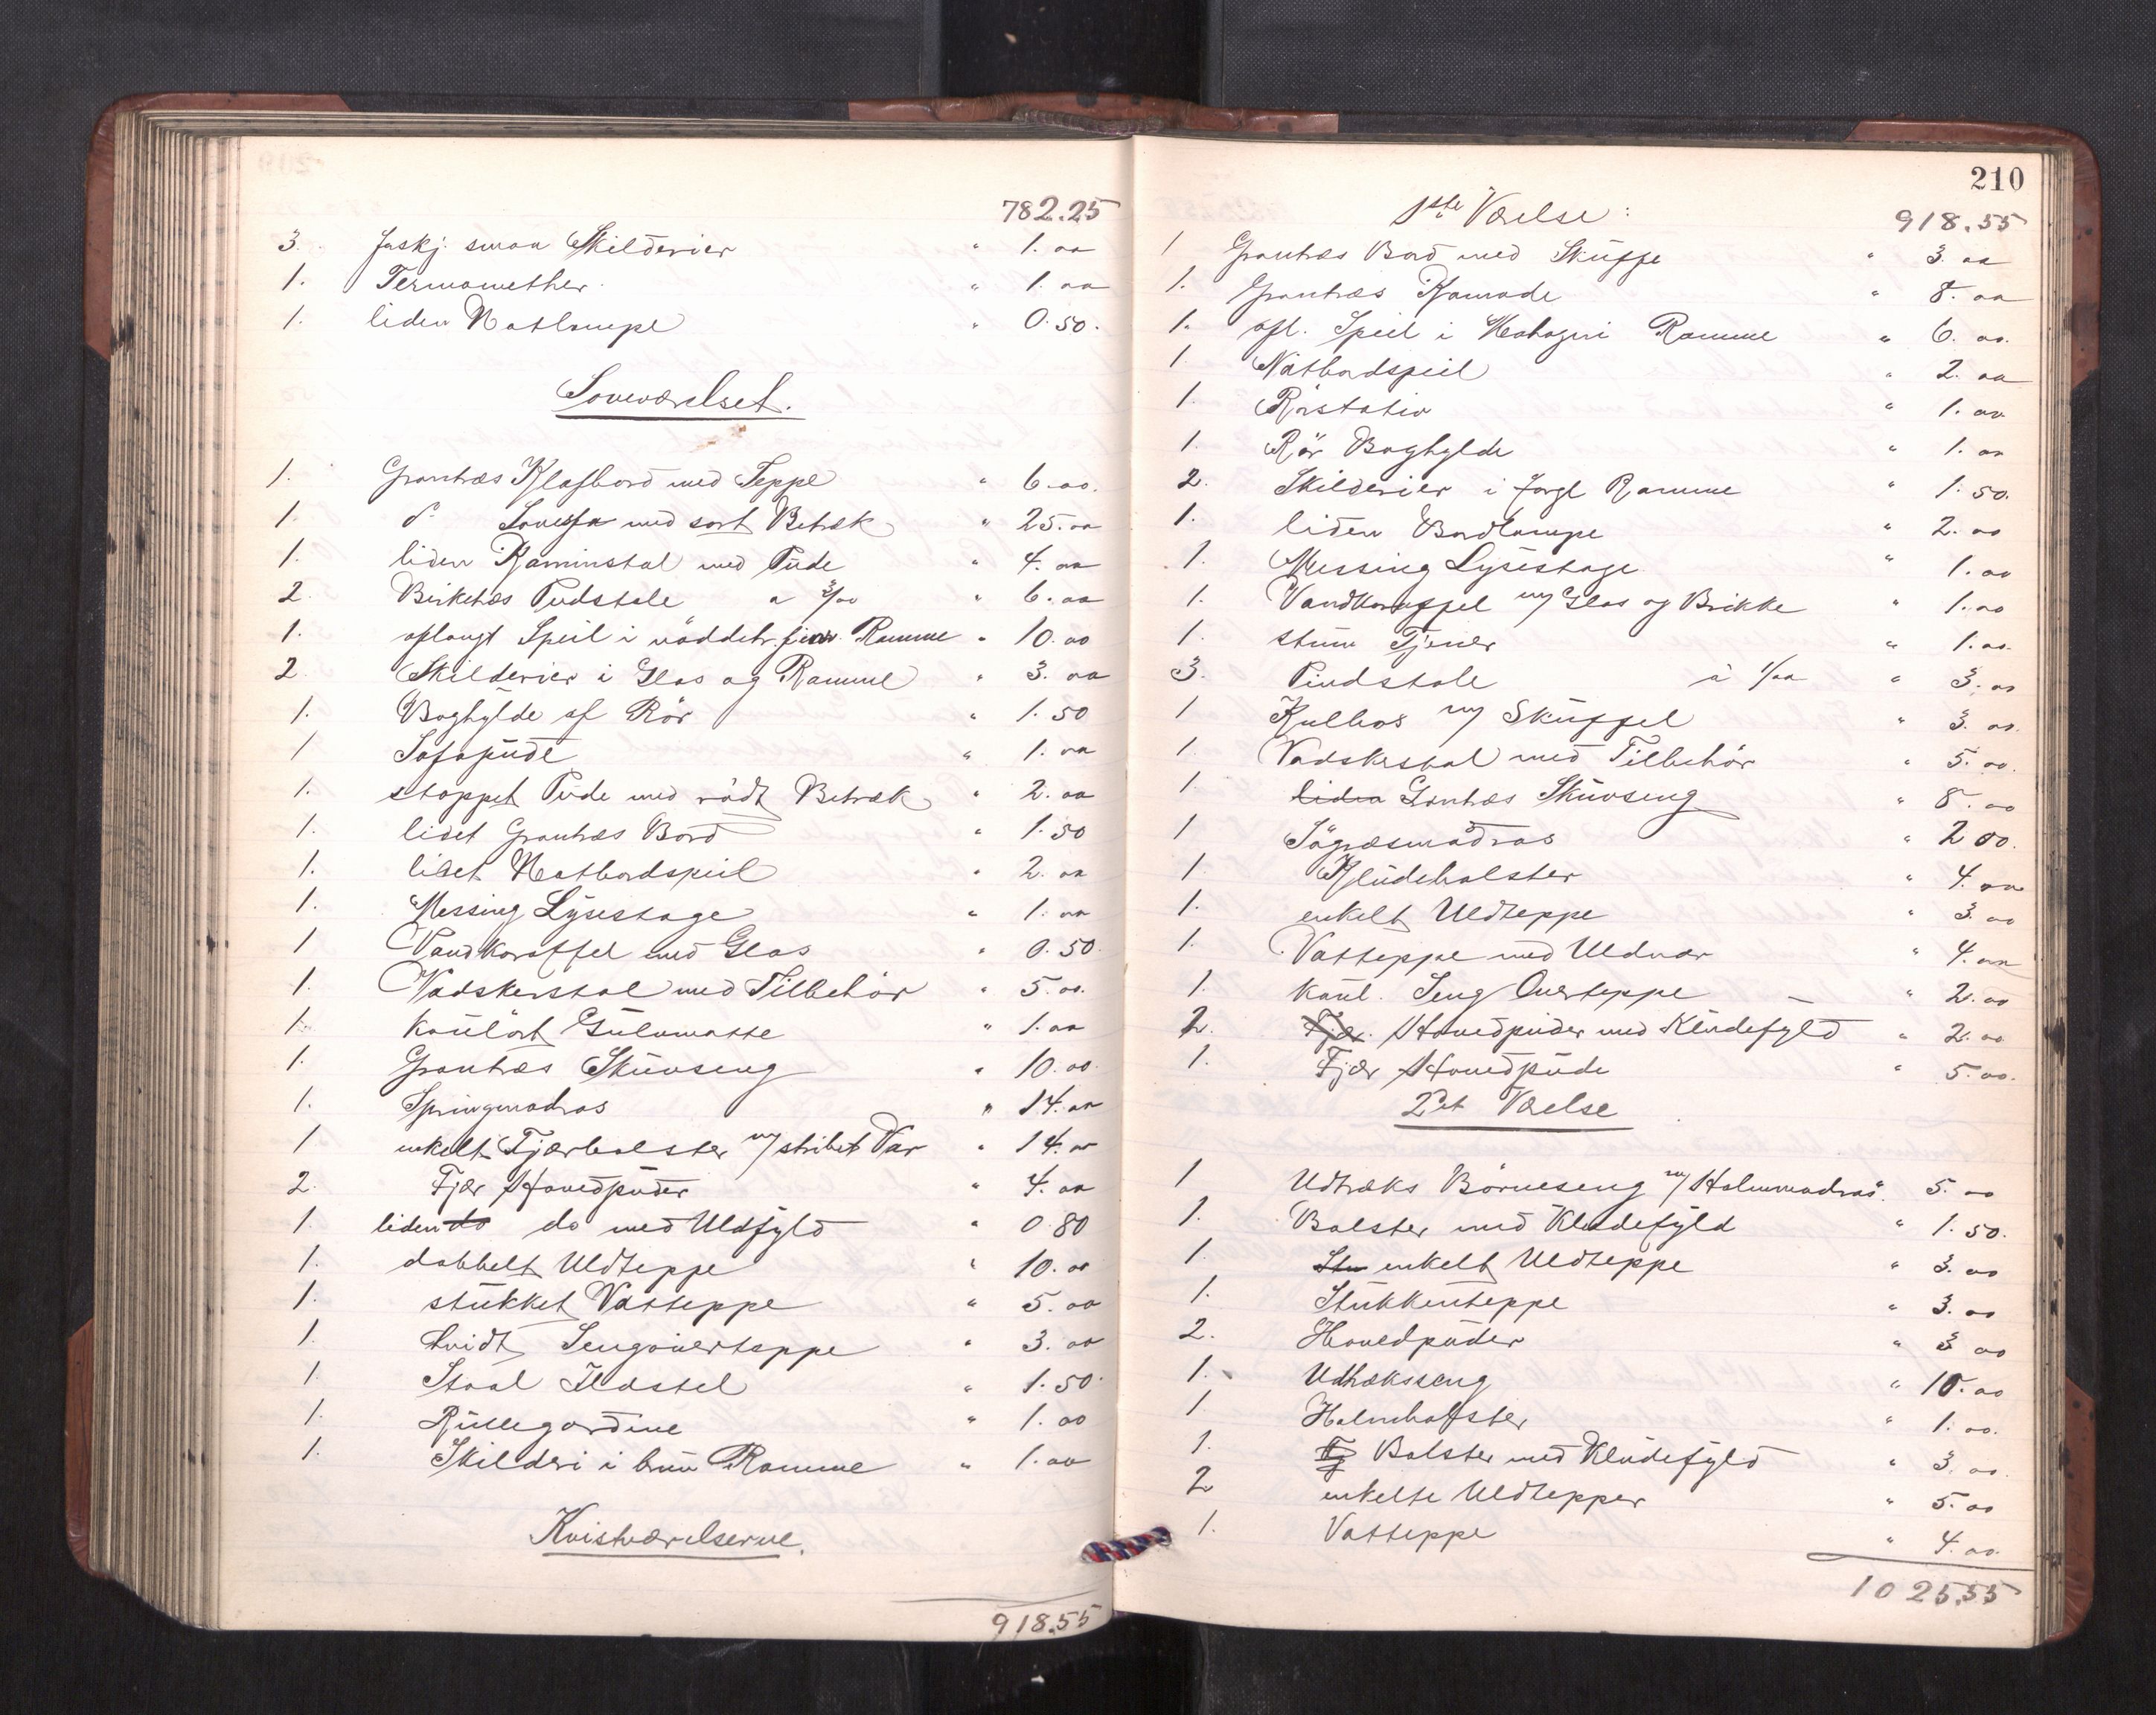 782.25
3. forskj. smaa Skilderier " 1.00
1. Termomether " 1.00
1. liden Natlampe " 0.50.
Soveværelset.
1. Grantræs Klafbord med Teppe " 6.00.
1. do Sovesofa med sort Betræk " 25.00
1. liden Kaminstol med Pude " 4.00
2. Birketræs Pindstole a 3/00 " 6.00
1. aflangt Speil i nøddetr. finr. Ramme " 10.00
2 Skilderier i Glas og Ramme " 3.00
1. Boghylde af Rör " 1.50
1 Sofapude " 1.00
1. stoppet Pude med rödt Betræk " 2.00
1. lidet Grantræs Bord " 1.50
1. lidet Natbordspeil " 2.00
1. Messing Lysestage " 1.00
1 Vandkaraffel med Glas " 0.50.
1. Vadskerstol med Tilbehör " 5.00.
1. koulört Gulvmatte " 1.00
1. Grantræs Skuvseng " 10.00.
1. Springmadras " 14.00
1 enkelt Fjærbolster m/ stribet Var " 14.00
2. Fjær Hovedpuder " 4.00
1. liden do do med Uldfyld " 0.80
1. dobbelt Uldteppe " 10.00
1. stukket Vatteppe " 5.00
1 hvidt Sengoverteppe " 3.00
1 Staal Ildstel " 1.50
1. Rullegardine " 1.00
1. Skilderi i brun Ramme " 1.00
Kvistværelserne.
918.55
210
1ste Værelse:
918.55
1 Grantræs Bord med Skuffe " 3.00
1. Grantræs Komode " 8.00
1. afl. Speil i Mahogni Ramme " 6.00.
1 Natbordspeil " 2.00
1. Rörstativ " 1.00
1. Rör Boghylde " 1.00
2. Skilderier i forgl Ramme " 1.50.
1. liden Bordlampe " 2.00
1. Messing Lysestage " 1.00
1. Vandkaraffel m/ Glas og Brikke " 1.00
1. stum Tjener " 1.00.
3. Pindstole à 1/00 " 3.00
1 Kulkas m/ Skuffel " 3.00.
1. Vadskestol med Tilbehör " 5.00.
1. liden Grantræs Skuvseng " 8.00
1 Sögræsmadras " 2 00.
1 Kludebolster " 4.00
1. enkelt Uldteppe " 3.00
1. Vatteppe med Uldvar " 4.00
1. koul. Seng Overteppe " 2.00
2. Fjær. Hovedpuder med Kludefyld " 2.00
1. Fjær Hovedpude " 5.00.
2det Værelse
1 Udtræks Börneseng m/ Halmmadras. 5.00
1. Bolster med Kludefyld " 1.50.
1. Stu enkelt Uldteppe " 3.00
1. Stukkenteppe " 3.00
2. Hovedpuder " 3 00
1. Udtræksseng " 10.00
1 Halmbolster " 1.00.
1. Fj Bolster med Kludefyld " 3.00.
2 enkelte Uldtepper " 5.00
1. Vatteppe " 4.00.
1025.55